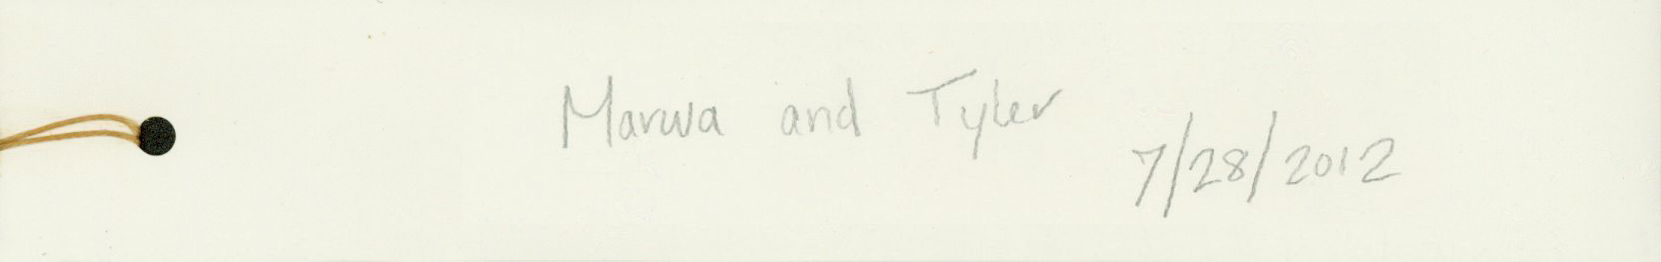 Marwa and Tyler
7/28/2012